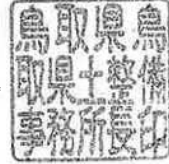 鳥取県鳥
取県土整備
事務所長印